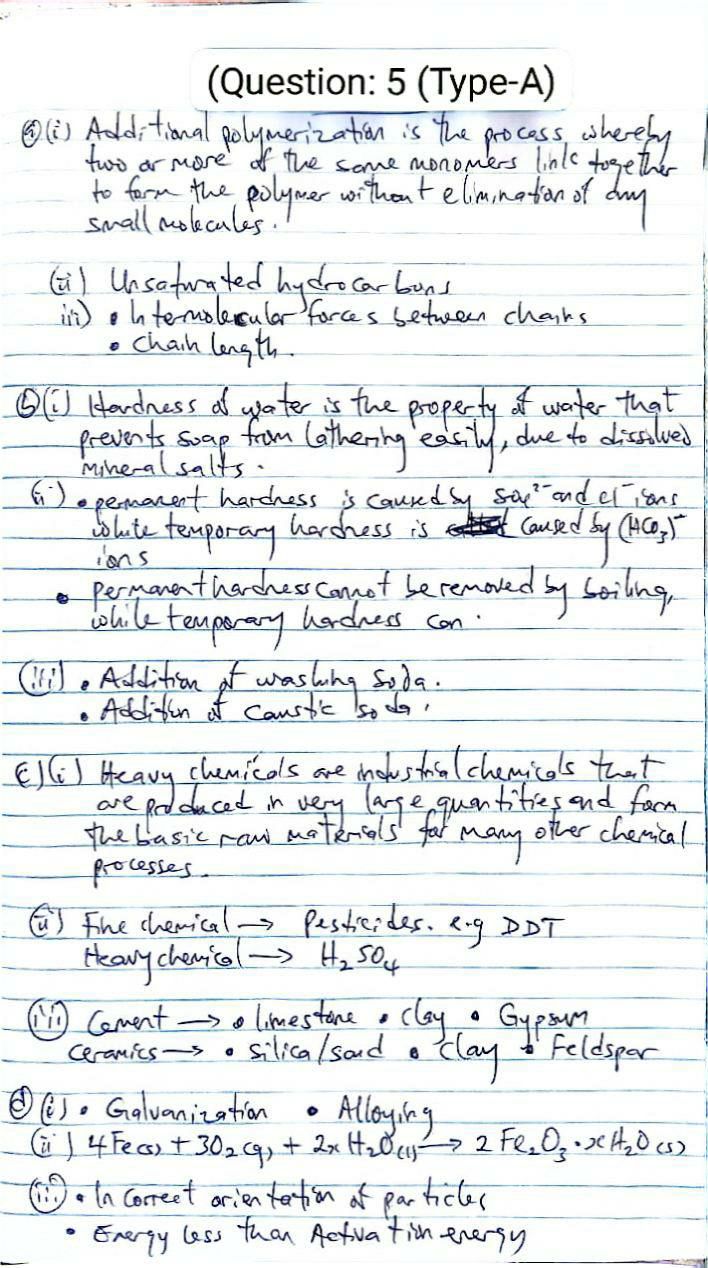 (Question: 5 (Type-A)
(a)(i) Additional polymerization is the process whereby
two or more of the same monomers link together
to form the polymer without elimination of any
small molecules.
(ii) Unsaturated hydrocarbons
iii) • Intermolecular forces between chains
• Chain length.
(b)(i) Hardness of water is the property of water that
prevents soap from lathering easily, due to dissolved
mineral salts.
(ii) • permanent hardness is caused by SO₄²⁻ and Cl⁻ ions
while temporary hardness is caused by (HCO₃)⁻
ions
• Permanent hardness cannot be removed by boiling,
while temporary hardness can.
(iii) • Addition of washing soda.
• Addition of caustic soda.
c)(i) Heavy chemicals are industrial chemicals that
are produced in very large quantities and form
the basic raw materials for many other chemical
processes.
(ii) Fine chemical → Pesticides. e.g DDT
Heavy chemical → H₂SO₄
(iii) Cement → • limestone • clay • Gypsum
Ceramics → • Silica/sand • Clay • Feldspar
(d)(i) • Galvanization • Alloying
(ii) 4Fe(s) + 3O₂(g) + 2xH₂O(l) → 2Fe₂O₃·xH₂O(s)
(iii) • Incorrect orientation of particles
• Energy less than Activation energy